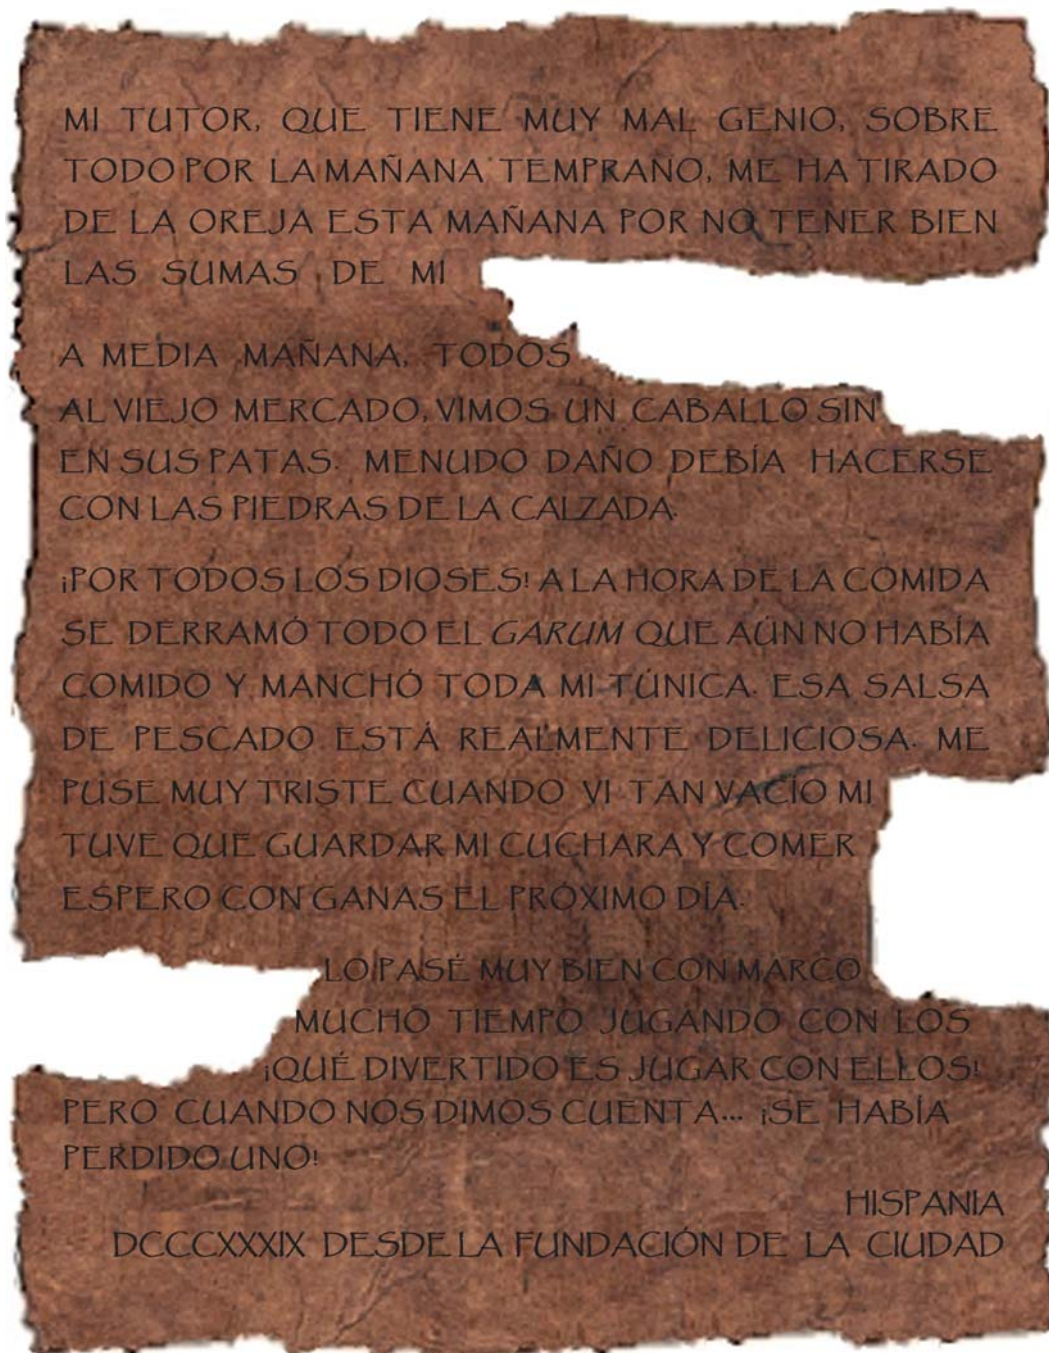 MI TUTOR, QUE TIENE MUY MAL GENIO, SOBRE
TODO POR LA MAÑANA TEMPRANO, ME HA TIRADO
DE LA OREJA ESTA MAÑANA POR NO TENER BIEN
LAS SUMAS DE MI
A MEDIA MAÑANA, TODOS
AL VIEJO MERCADO, VIMOS UN CABALLO SIN
EN SUS PATAS. MENUDO DAÑO DEBÍA HACERSE
CON LAS PIEDRAS DE LA CALZADA.
¡POR TODOS LOS DIOSES! A LA HORA DE LA COMIDA
SE DERRAMÓ TODO EL GARUM QUE AÚN NO HABÍA
COMIDO Y MANCHÓ TODA MI TÚNICA. ESA SALSA
DE PESCADO ESTÁ REALMENTE DELICIOSA. ME
PUSE MUY TRISTE CUANDO VI TAN VACÍO MI
TUVE QUE GUARDAR MI CUCHARA Y COMER
ESPERO CON GANAS EL PRÓXIMO DÍA.
LO PASÉ MUY BIEN CON MARCO
MUCHO TIEMPO JUGANDO CON LOS
¡QUÉ DIVERTIDO ES JUGAR CON ELLOS!
PERO CUANDO NOS DIMOS CUENTA... ¡SE HABÍA
PERDIDO UNO!
HISPANIA
DCCCXXXIX DESDE LA FUNDACIÓN DE LA CIUDAD